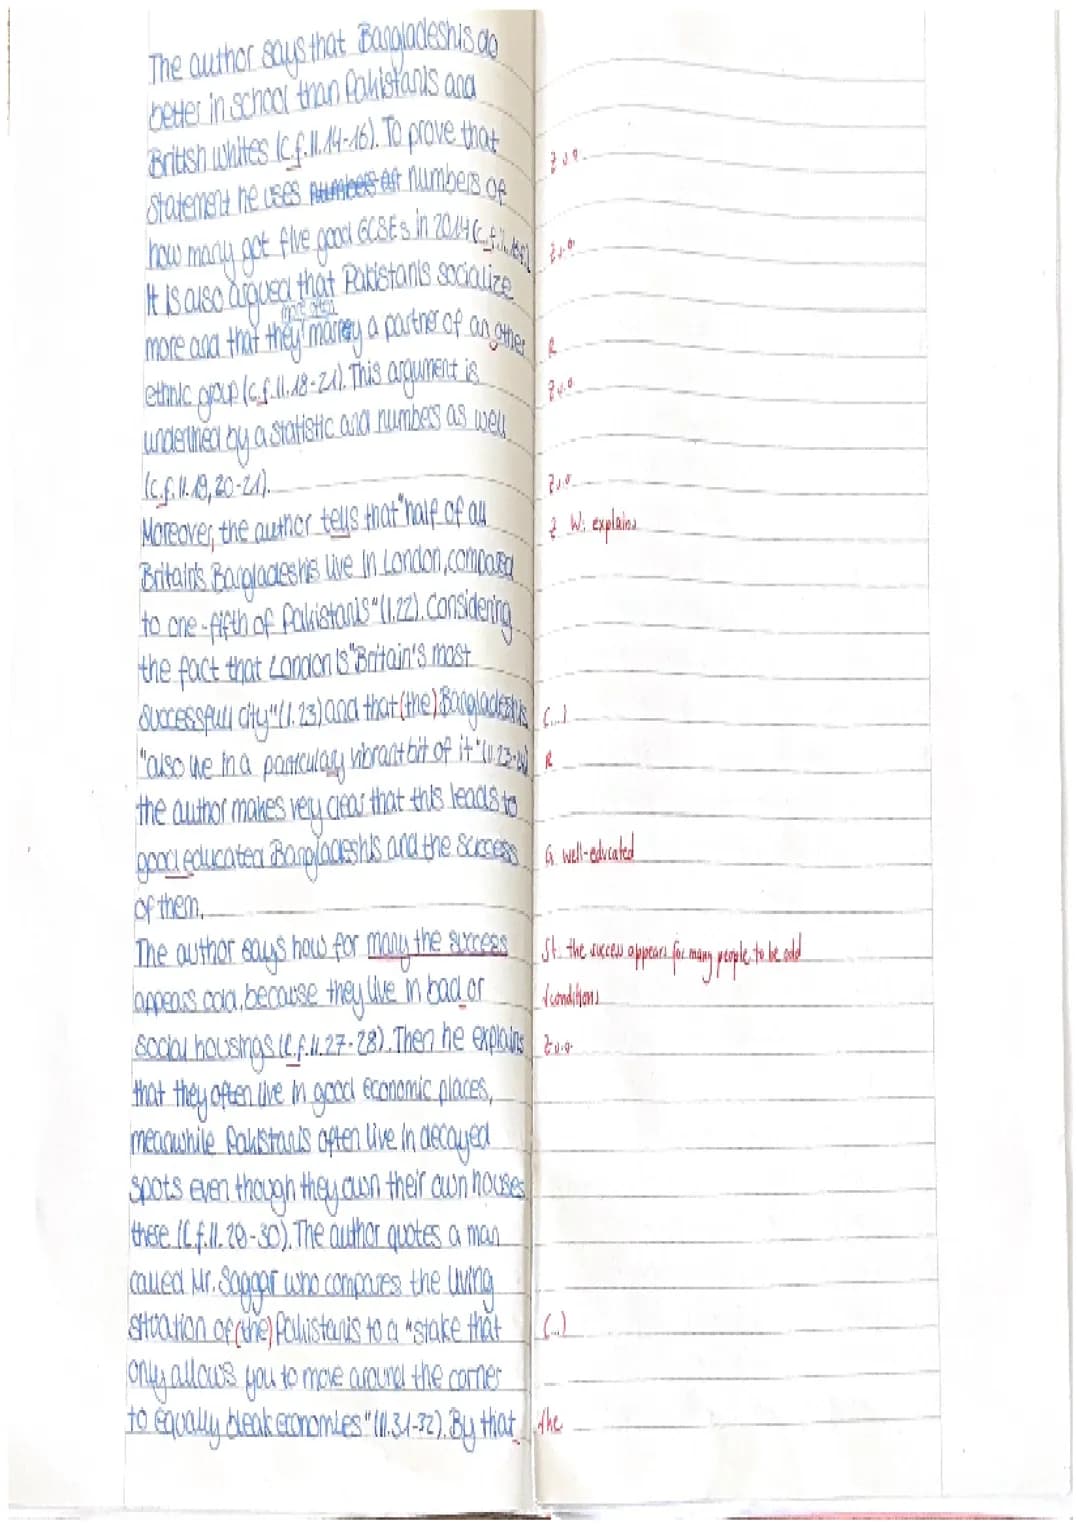 The author says that Bangladeshis do
better in school than Pakistanis and
British whites (c.f. ll. 14-16). To prove that
Z u.o.
statement he uses numbers of
how many got five good GCSEs in 2014 (c.f. l.
Z.u.o.
It is also argued that Pakistanis socialize
more often
more and that they marry a partner of an other
R
ethnic group (c.f. ll. 18-21). This argument is
Z.u.o.
underlined by a statistic and numbers as well
(c.f. ll. 19, 20-21).
Z.u.o.
Moreover, the author tells that "half of all
Z W: explains
Britain's Bangladeshis live in London, compared
to one-fifth of Pakistanis" (l. 22). Considering
the fact that London is "Britain's most
successfull city" (l. 23) and that (the) Bangladeshis
(...)
"also live in a particulary vibrant bit of it" (ll. 23-24)
R
the author makes very clear that this leads to
good educated Bangladeshis and the success
G. well-educated
of them.
The author says how for many the success
St. the success appears for many people to be odd
appears odd, because they live in bad or
√conditions
social housings (c.f. ll. 27-28). Then he explains
Z.u.o.
that they often live in good economic places,
meanwhile Pakistanis often live in decayed
spots even though they own their own houses
there (c.f. ll. 28-30). The author quotes a man
called Mr. Saggar who compares the living
situation of (the) Pakistanis to a "stake that
(...)
only allows you to move around the corner
to equally bleak economies" (ll. 31-32). By that
√he